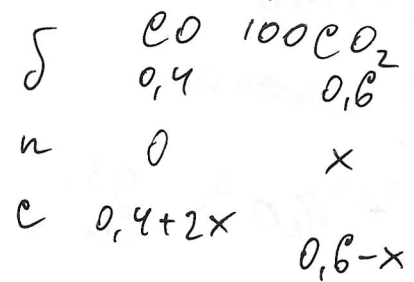 CO 100CO₂
б 0,4 0,6
п 0 x
с 0,4+2x 0,6-x